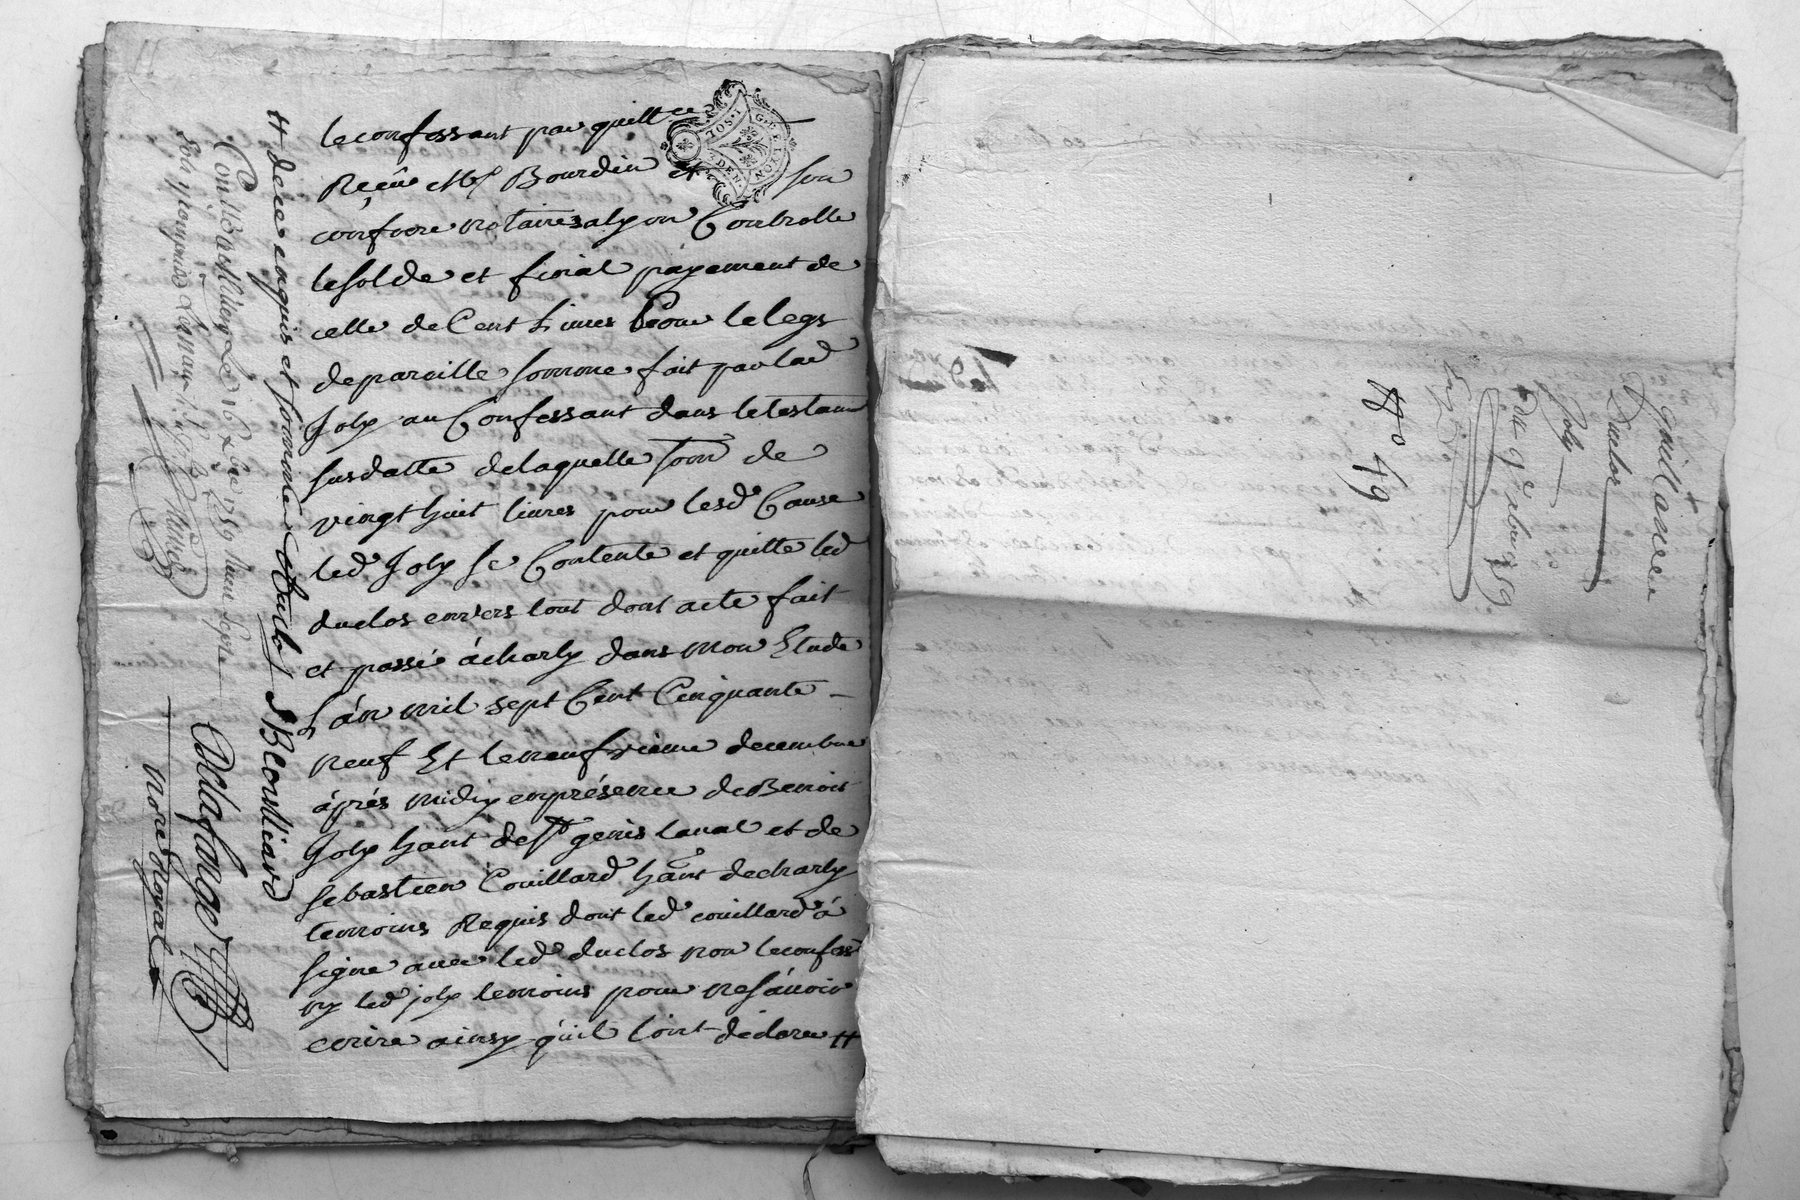 le confessant par quittce
Reçeüe Me Bourdin et son
confrere notaires a lyon Controlle
le solde et final payement de
celle de Cent Livres Pour le legs
de pareille somme fait par lad
Joly au Confessant dans le testam
susdatte de laquelle som de
vingt huit livres pour lesd Cause
led Joly se Contente et quitte led
duclos envers tout dont acte fait
et passé á charly dans mon Etude
L'án mil sept Cent Cinquante
neuf Et le neufvieme decembre
áprés midy en présence de Benoit
Joly hant de St genis laval et de
sebastien Couillard hant de charly
temoins Requis dont led couillard á
signe avec led duclos non le confess
ny led joly temoins pour ne sávoir
ecrire ainsy qu'il l'ont déclare #
# de ce enquis et somme
S B Couillard
Le 16 Xbre 1759
Delafange
Nore Royal
1 SOL
DEN.
GN DE LYON
quittance
Duclos
Joly
du 9e Xbre 1759
No 49